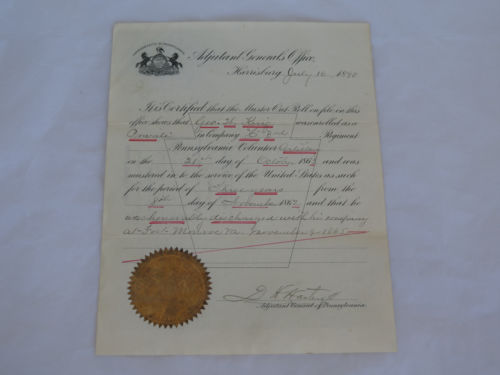 Adjutant General's Office,
Harrisburg, July 16, 1890
It is Certified that the Muster Out Roll on file in this
office shows that Geo. W. was enrolled as a
Private in Company Regiment
Pennsylvania Volunteer Artillery
on the 21st day of October 186 and was
mustered in to the service of the United States as such
for the period of Three years from the
day of November 186 and that he
was honorably discharged with his company
at Fort Monroe Va. November 9 1865
Adjutant General of Pennsylvania.